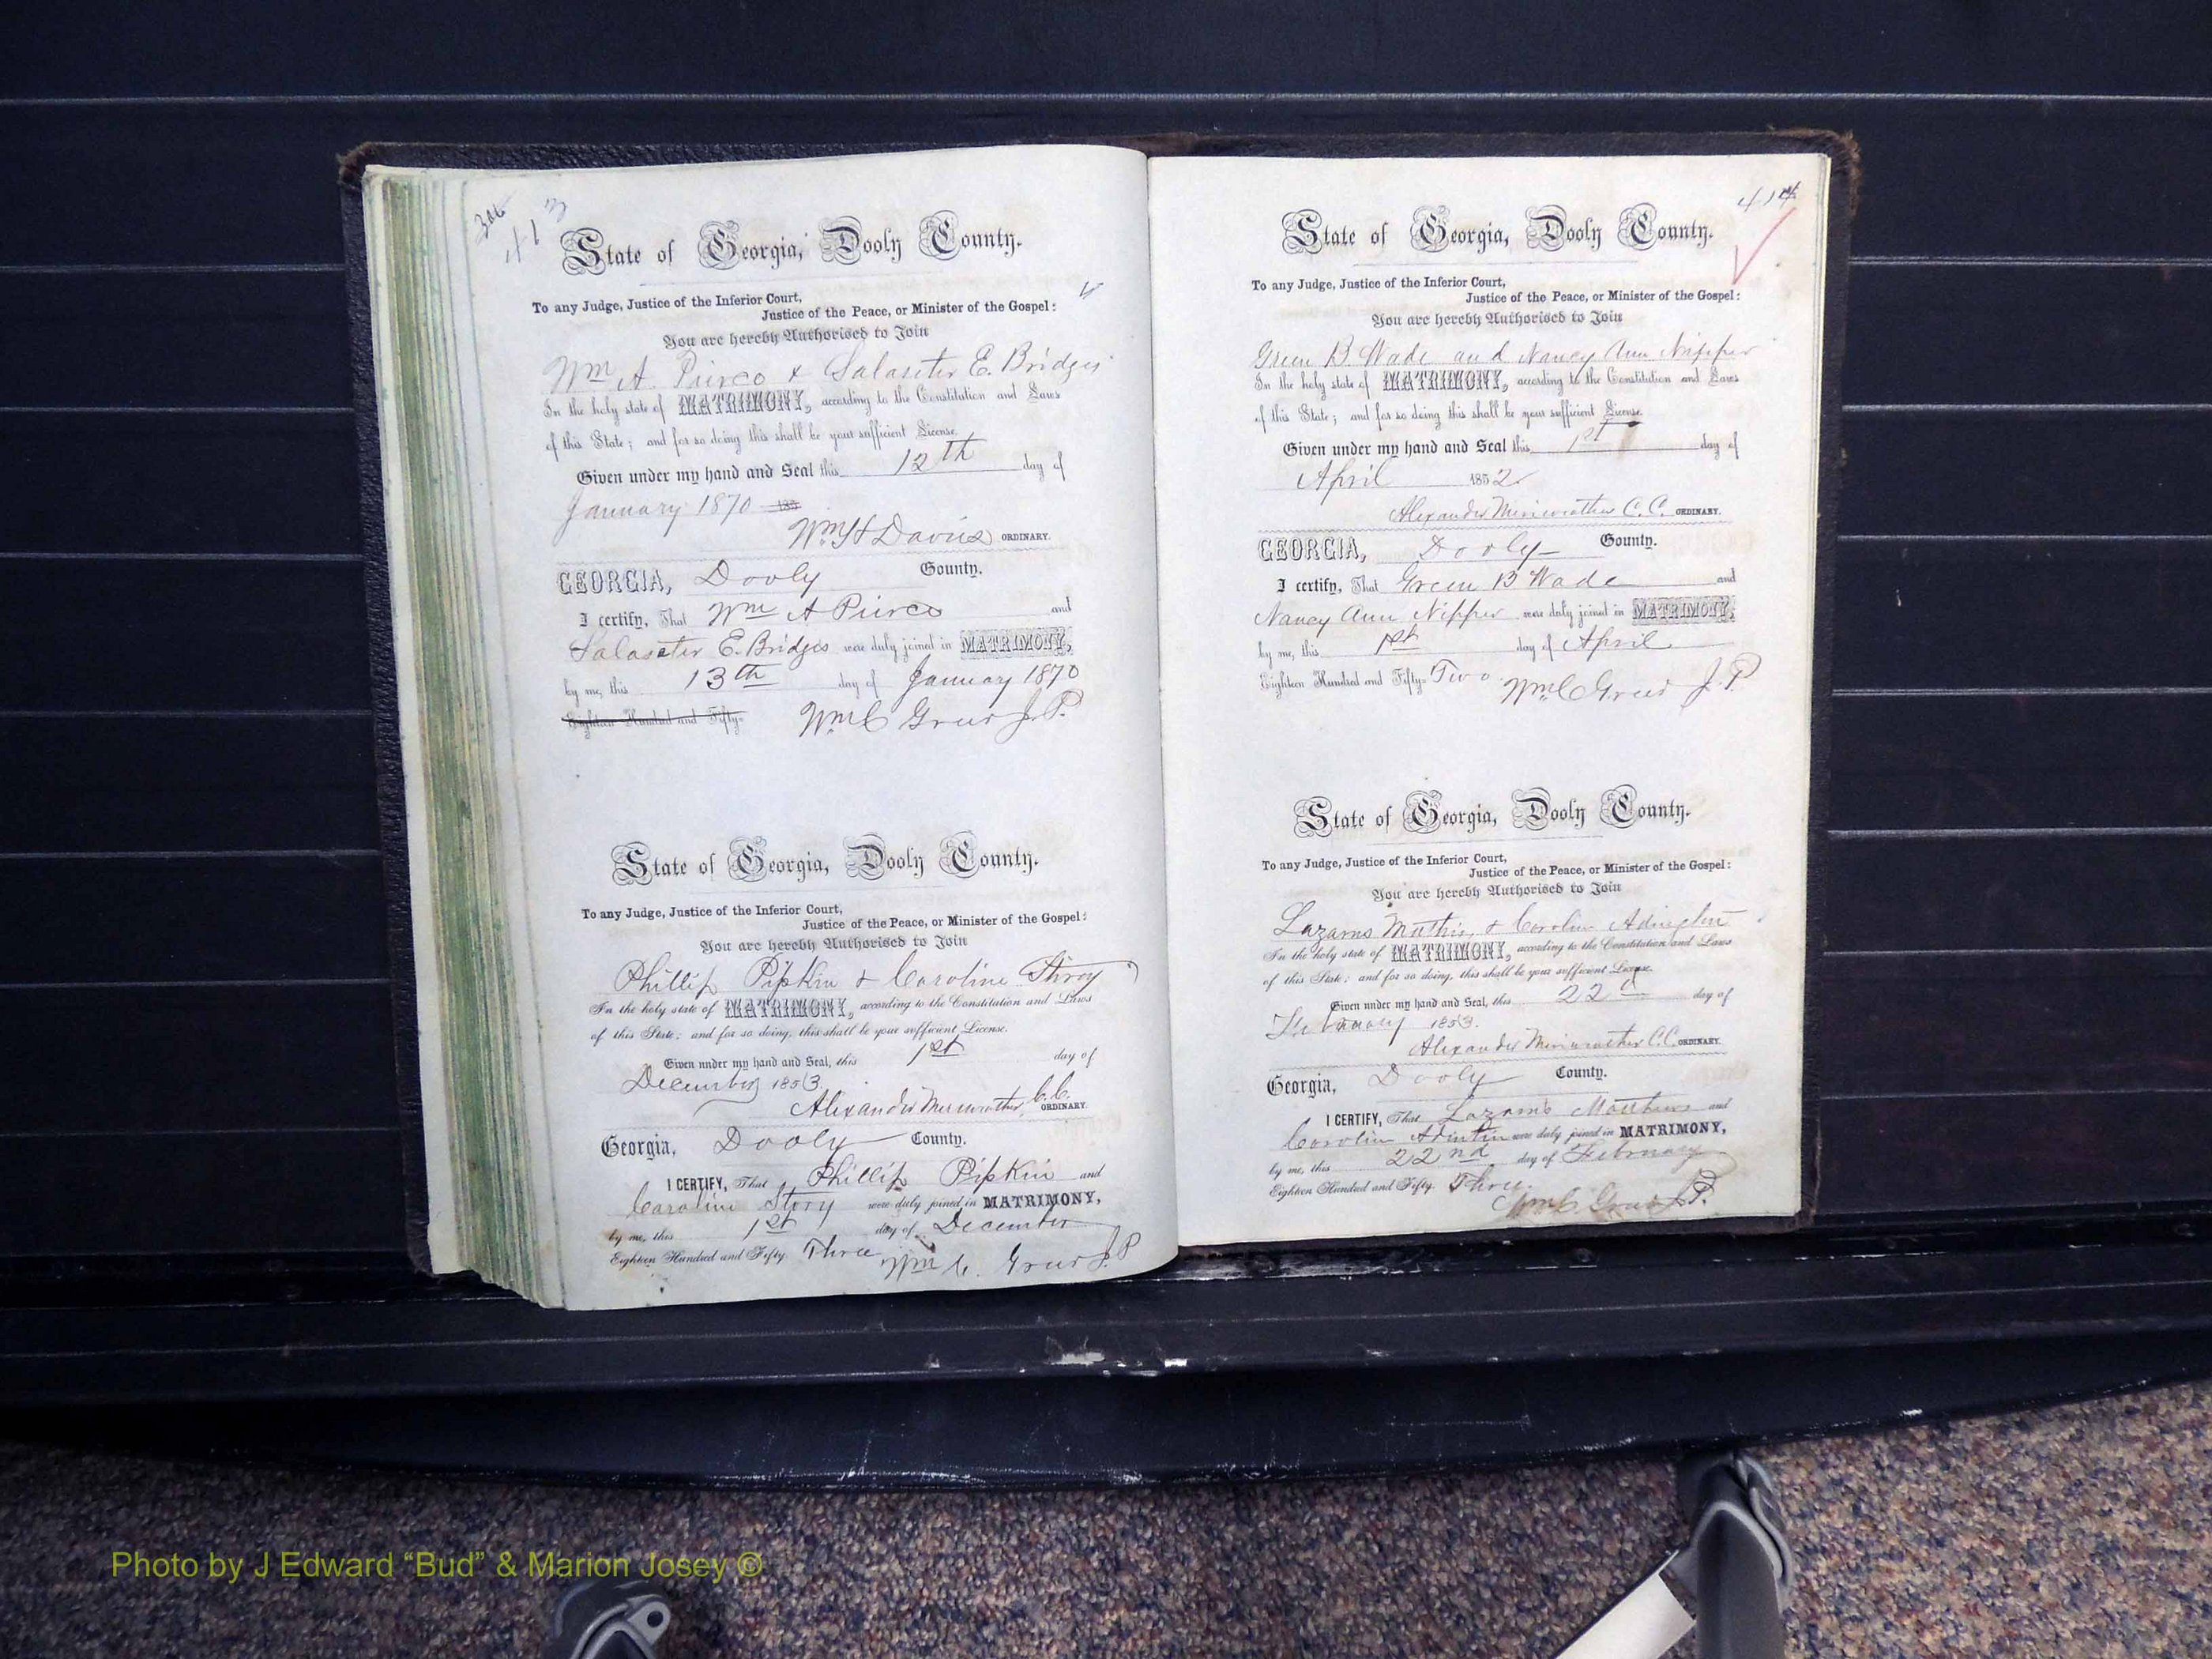 306
413
State of Georgia, Dooly County.
To any Judge, Justice of the Inferior Court,
Justice of the Peace, or Minister of the Gospel:
You are hereby Authorised to Join
Wm A. Pierco & Salaseter E. Bridges
In the holy state of MATRIMONY, according to the Constitution and Laws
of this State; and for so doing this shall be your sufficient License.
Given under my hand and Seal this 12th day of
January 1870 185
Wm H Davies ORDINARY.
GEORGIA, Dooly County.
I certify, That Wm A Pierco and
Salaseter E. Bridges were duly joined in MATRIMONY,
by me, this 13th day of January 1870
Eighteen Hundred and Fifty-
Wm C Greer J.P.
State of Georgia, Dooly County.
To any Judge, Justice of the Inferior Court,
Justice of the Peace, or Minister of the Gospel:
You are hereby Authorised to Join
Phillip Pipkin & Caroline Story
In the holy state of MATRIMONY, according to the Constitution and Laws
of this State; and for so doing, this shall be your sufficient License.
Given under my hand and Seal, this 1st day of
December 1853.
Alexander Meriweather C.C. ORDINARY.
Georgia, Dooly County.
I CERTIFY, That Phillip Pipkin and
Caroline Story were duly joined in MATRIMONY,
by me, this 1st day of December
Eighteen Hundred and Fifty Three Wm C. Greer J.P
414
State of Georgia, Dooly County.
To any Judge, Justice of the Inferior Court,
Justice of the Peace, or Minister of the Gospel:
You are hereby Authorised to Join
Green B Wade and Nancy Ann Nipper
In the holy state of MATRIMONY, according to the Constitution and Laws
of this State; and for so doing this shall be your sufficient License.
Given under my hand and Seal this 1st day of
April 1852
Alexander Meriweather C.C. ORDINARY.
GEORGIA, Dooly County.
I certify, That Green B Wade and
Nancy Ann Nipper were duly joined in MATRIMONY,
by me, this 1st day of April
Eighteen Hundred and Fifty-Two. Wm C Greer J.P.
State of Georgia, Dooly County.
To any Judge, Justice of the Inferior Court,
Justice of the Peace, or Minister of the Gospel:
You are hereby Authorised to Join
Lazarus Mathis & Carolin Adington
In the holy state of MATRIMONY, according to the Constitution and Laws
of this State; and for so doing, this shall be your sufficient License.
Given under my hand and Seal, this 22d day of
February 1853.
Alexander Meriweather C.C. ORDINARY.
Georgia, Dooly County.
I CERTIFY, That Lazarus Matthews and
Carolin Adintin were duly joined in MATRIMONY,
by me, this 22nd day of February
Eighteen Hundred and Fifty Three.
Wm C. Greer J.P.
Photo by J Edward “Bud” & Marion Josey ©